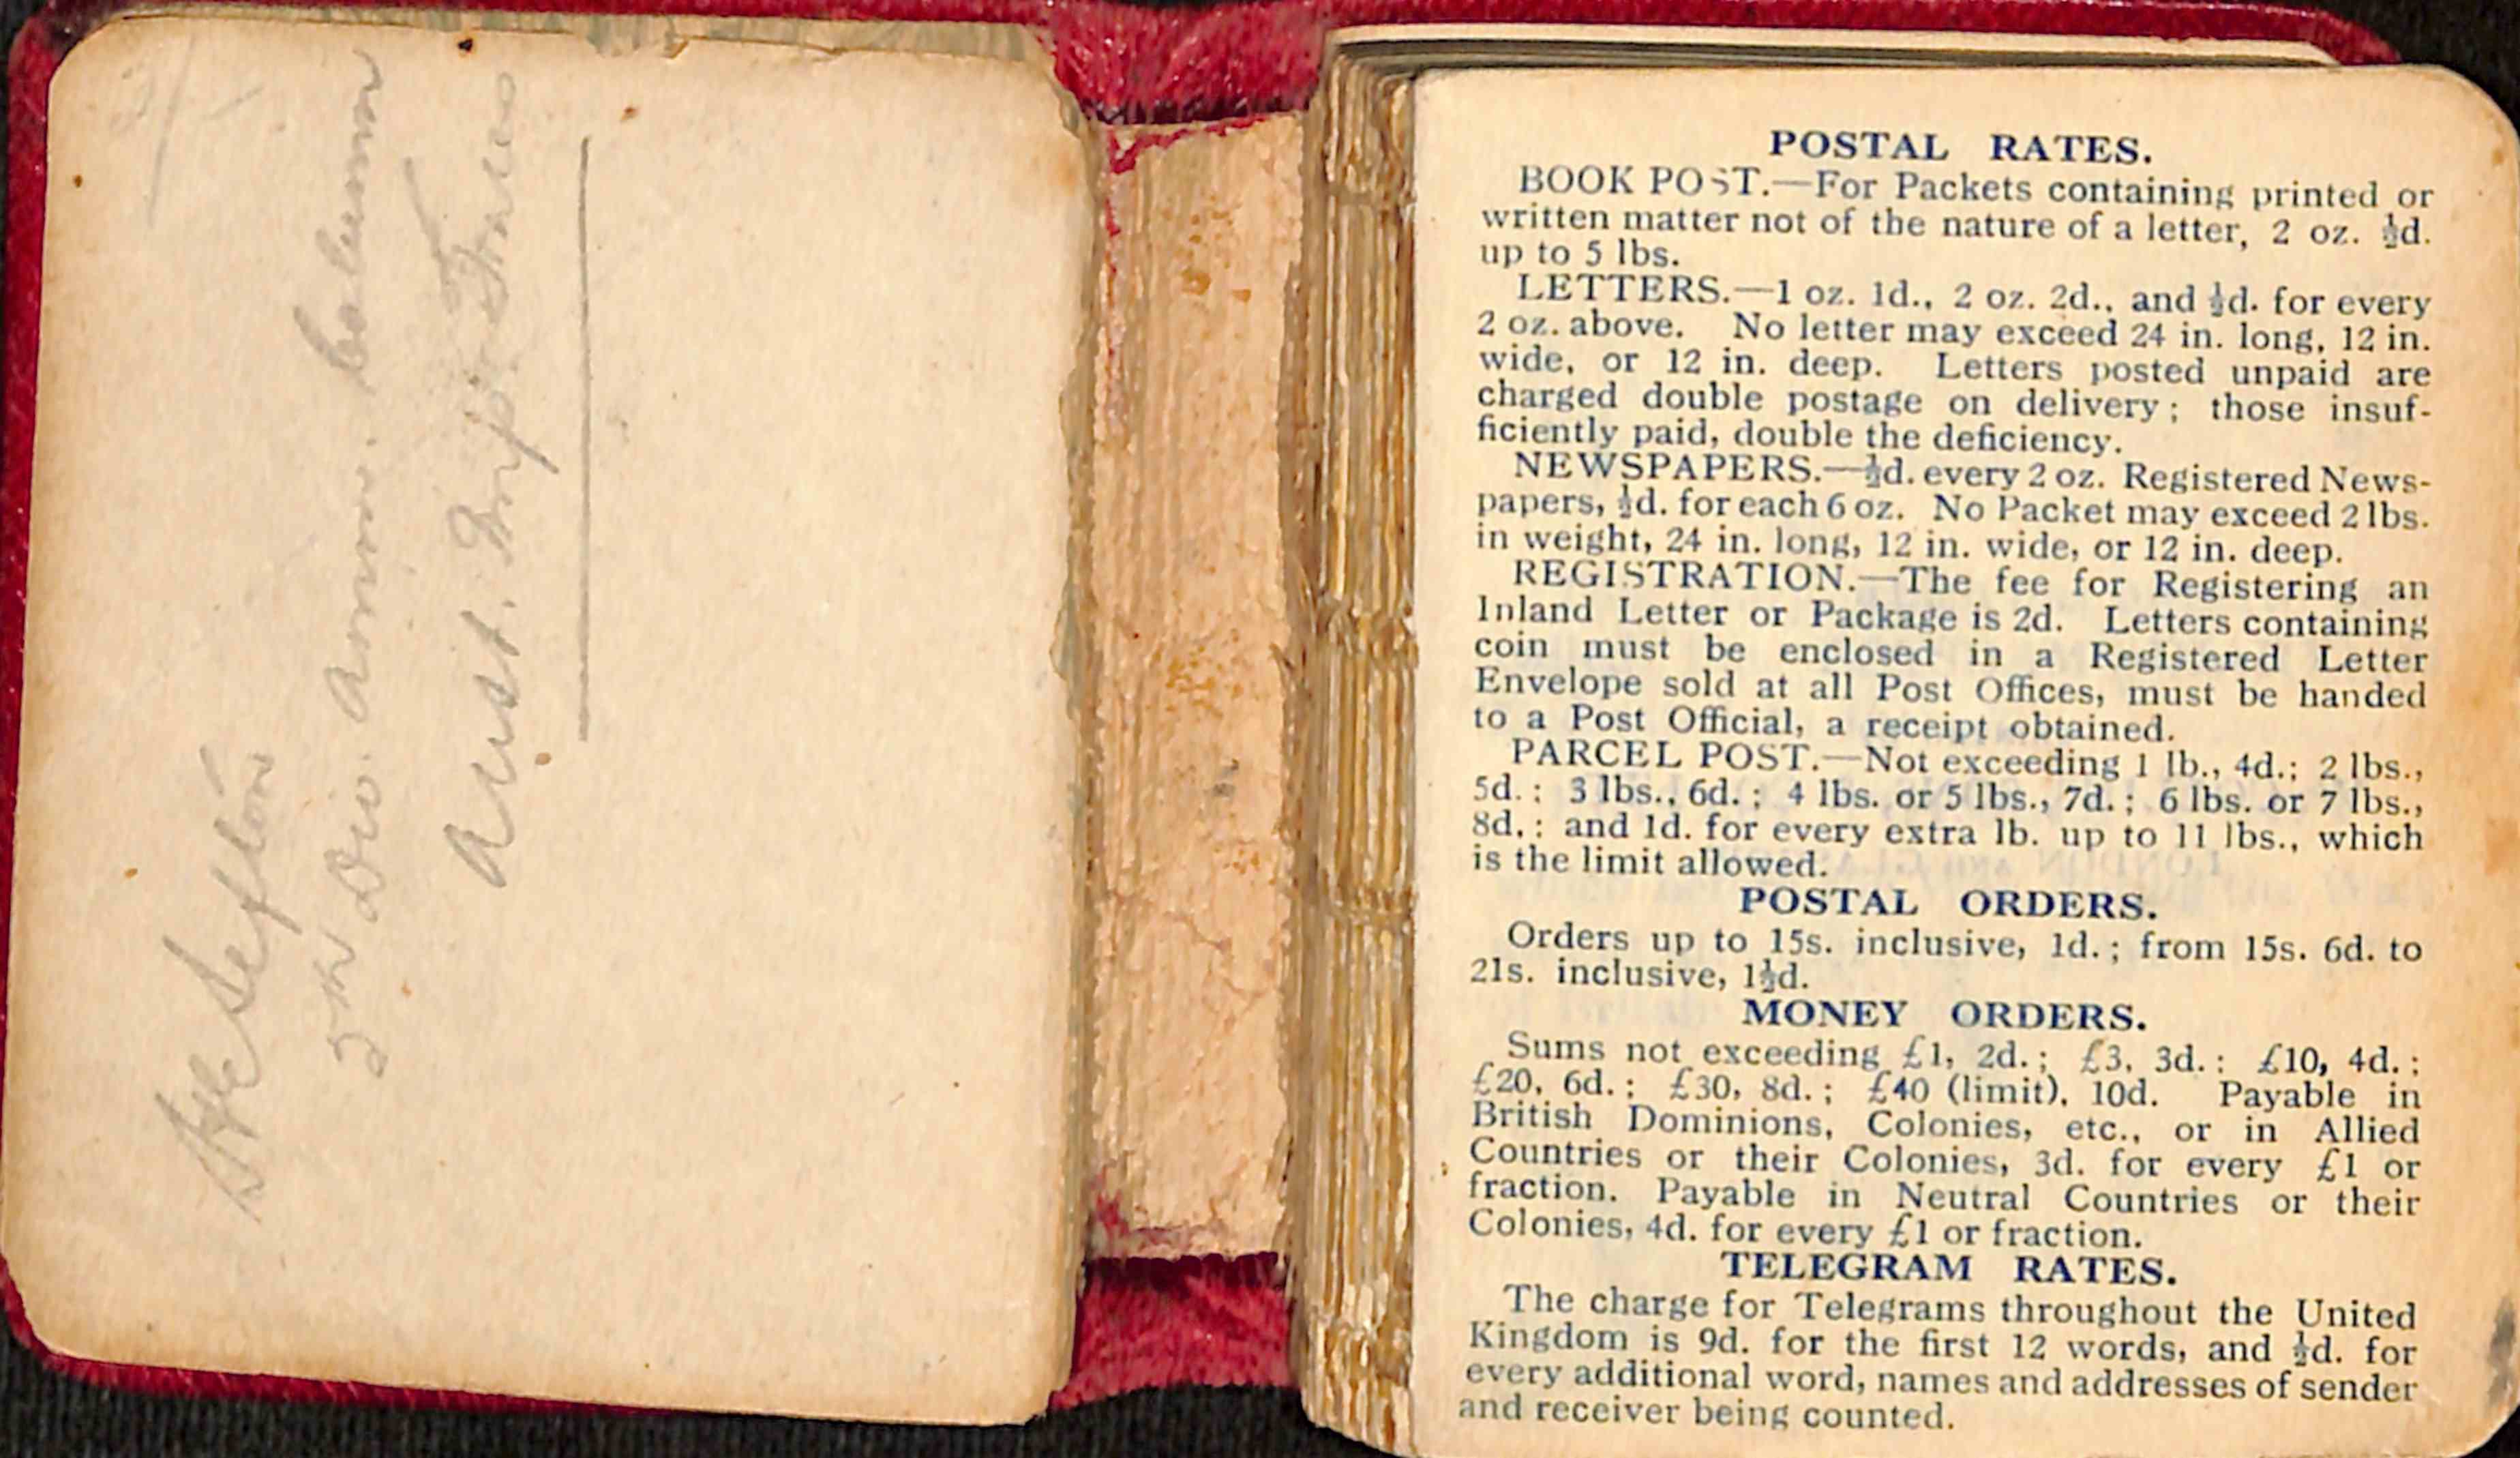 A J E Sefton
2nd Div. Ammn. Column
Aust. Imp. Forces
POSTAL RATES.
BOOK POST.—For Packets containing printed or
written matter not of the nature of a letter, 2 oz. ½d.
up to 5 lbs.
LETTERS.—1 oz. 1d., 2 oz. 2d., and ½d. for every
2 oz. above. No letter may exceed 24 in. long, 12 in.
wide, or 12 in. deep. Letters posted unpaid are
charged double postage on delivery; those insuf-
ficiently paid, double the deficiency.
NEWSPAPERS.—½d. every 2 oz. Registered News-
papers, ½d. for each 6 oz. No Packet may exceed 2 lbs.
in weight, 24 in. long, 12 in. wide, or 12 in. deep.
REGISTRATION.—The fee for Registering an
Inland Letter or Package is 2d. Letters containing
coin must be enclosed in a Registered Letter
Envelope sold at all Post Offices, must be handed
to a Post Official, a receipt obtained.
PARCEL POST.—Not exceeding 1 lb., 4d.; 2 lbs.,
5d.; 3 lbs., 6d.; 4 lbs. or 5 lbs., 7d.; 6 lbs. or 7 lbs.,
8d.; and 1d. for every extra lb. up to 11 lbs., which
is the limit allowed.
POSTAL ORDERS.
Orders up to 15s. inclusive, 1d.; from 15s. 6d. to
21s. inclusive, 1½d.
MONEY ORDERS.
Sums not exceeding £1, 2d.; £3, 3d.; £10, 4d.;
£20, 6d.; £30, 8d.; £40 (limit), 10d. Payable in
British Dominions, Colonies, etc., or in Allied
Countries or their Colonies, 3d. for every £1 or
fraction. Payable in Neutral Countries or their
Colonies, 4d. for every £1 or fraction.
TELEGRAM RATES.
The charge for Telegrams throughout the United
Kingdom is 9d. for the first 12 words, and ½d. for
every additional word, names and addresses of sender
and receiver being counted.